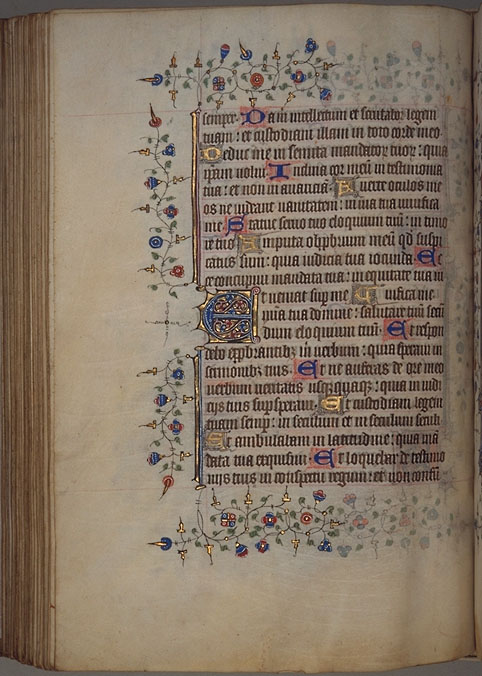 semper. Da m intellectum et scrutabor legem
tuam : et custodiam illam in toto corde meo
Deduc me in semita mandator tuor : quia
ipam volui. Inclina cor meu in testimonia
tua : et non in avaricia. Averte oculos me
os ne videant vanitatem : in via tua vivifica
me. Statue servo tuo eloquium tuu : in timo
re tuo. Amputa obprbrium meu qd suspi
catus sum : quia iudicia tua iocunda. Ec
ce concupivi mandata tua : in equitate tua vi
vifica me.
Et veniat sup me
pia tua domine : salutare tuu secu
dum eloquium tuu. Et respon
debo exprbrantibz m verbum : quia speravi in
sermonibz tuis. Et ne auferas de ore meo
verbum veritatis usqzquaqz : quia in iudi
cijs tuis supsperavi. Et custodiam legem
tuam semp : in seculum et in seculum seculi.
Et ambulabam in latitudine : quia ma
data tua exquisivi. Et loquebar de testimo
nijs tuis in conspectu regum : et non confu